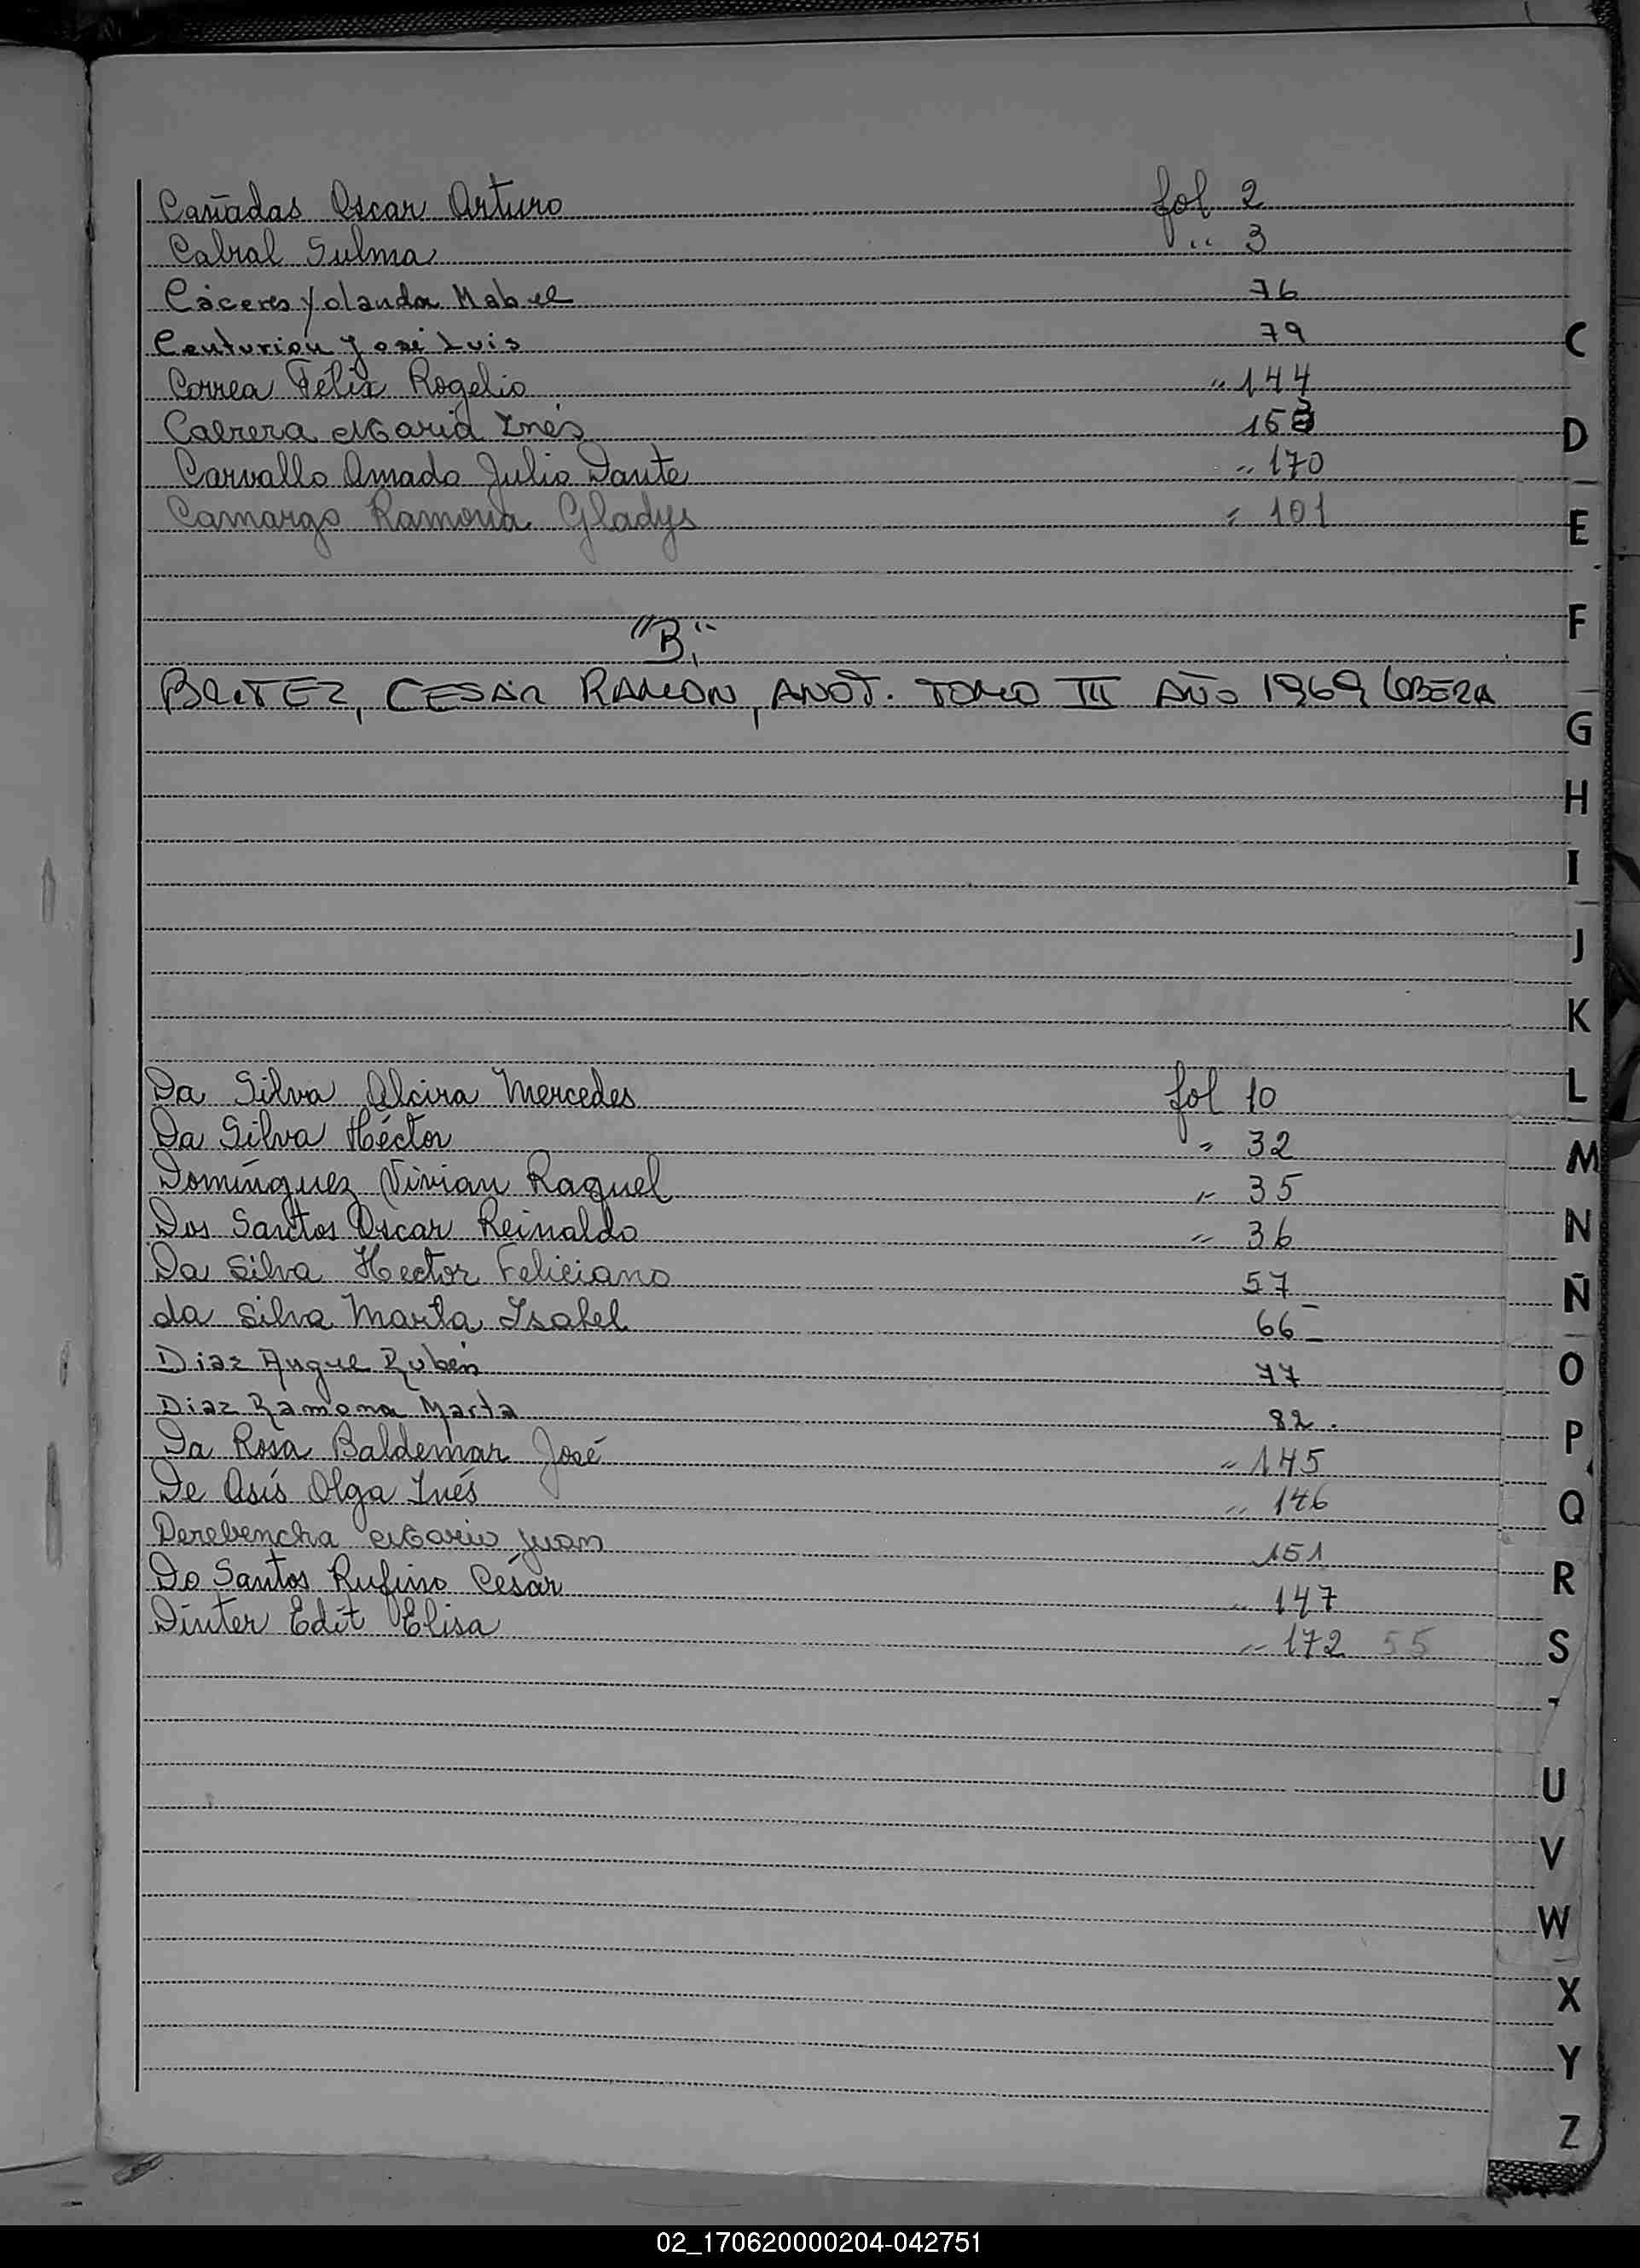 Cañadas Oscar Arturo fol 2
Cabral Sulma " 3
Cáceres Yolanda Mabel 76
Centurion José Luis 79
Correa Félix Rogelio " 144
Cabrera Maria Inés 153
Carvallo Amado Julio Dante " 170
Camargo Ramona Gladys " 101
"B"
BRITEZ, CESAR RAMON, ANOT. TOMO III AÑO 1969 (OBERA
Da Silva Alcira Mercedes fol 10
Da Silva Héctor " 32
Domínguez Vivian Raquel " 35
Dos Santos Oscar Reinaldo " 36
Da Silva Hector Feliciano 57
da Silva Marta Isabel 66
Diaz Angel Rubén 77
Diaz Ramona Marta 82.
Da Rosa Baldemar José " 145
De Asís Olga Inés " 146
Derebencha Mario Juan 151
Do Santos Rufino César " 147
Dinter Edit Elisa " 172 55
C
D
E
F
G
H
I
J
K
L
M
N
Ñ
O
P
Q
R
S
U
V
W
X
Y
Z
02_170620000204-042751